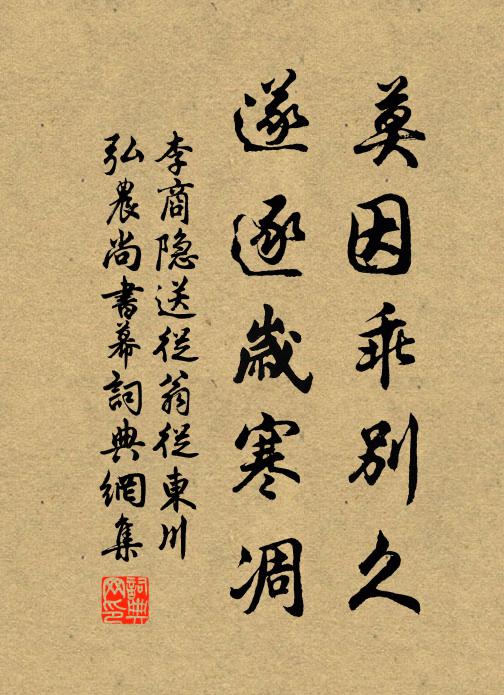 莫因乖別久
遂逐歲寒凋
李商隐送從翁從東川
弘農尚書幕詞典網集
詞典网印